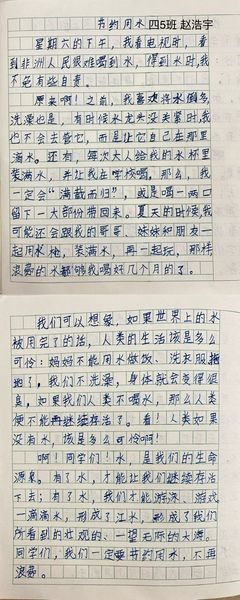 节约用水 四5班 赵浩宇
星期六的下午，我看电视时，看
到非洲人民很难喝到水，得到水时，我
不免有些自责。
原来啊！之前，我喜欢将水倒多，
洗澡也是，有时候水龙头没关紧时，我
也不会去管它，而是让它自己在那里
滴水。还有，每次大人给我的水杯里
装满水，并让我在学校喝，那么，我
一定会“满载而归”，就是喝一两口
留下一大部份带回来。夏天的时候，我
可能还会跟我的哥哥、妹妹和朋友一
起用水枪，装满水，再一起玩，那样
浪费的水都够我喝好几个月的了。
我们可以想象，如果世界上的水
被用完了的话，人类的生活该是多么
可怜：妈妈不能用水做饭、洗衣服、拖
地了，我们不洗澡，身体就会变得很
臭，如果我们人类不喝水，那么人类
便不能再继续存活了。看！人类如果
没有水，该是多么可怜啊！
啊！同学们！水，是我们的生命
源泉。有了水，才能让我们继续存活
下去；有了水，我们才能游泳、游戏
一滴滴水，形成了江水，形成了我们
所看到的壮观的、一望无际的大海。
同学们，我们一定要节约用水，不再
浪费。